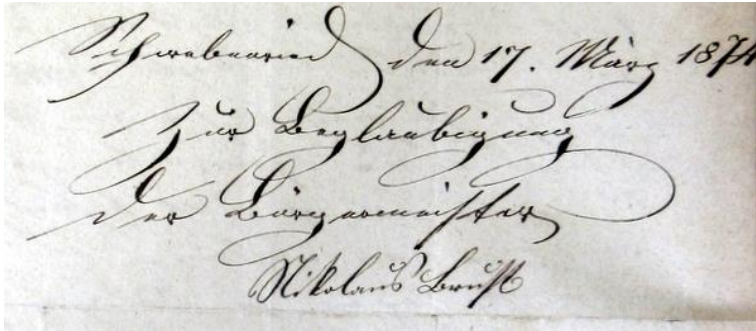 Schwebenried den 17. März 1874
Zur Beglaubigung
der Bürgermeister
Nikolaus Brust